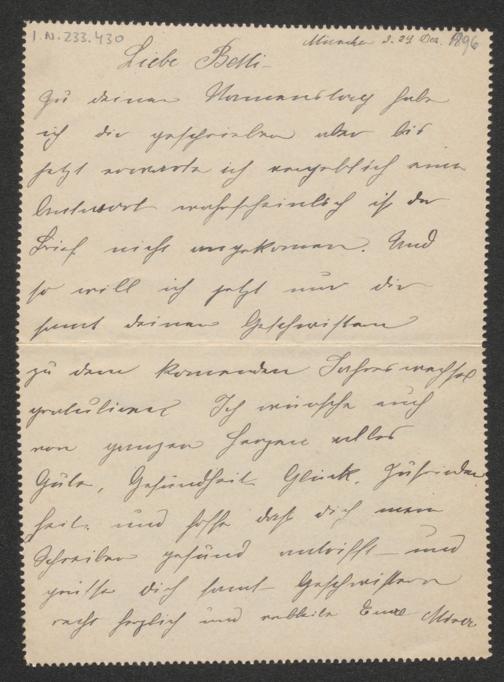 I.N. 233.430
München d. 29 Dez. 1896
Liebe Betti
Zu deinem Namenstag habe
ich dir geschrieben aber bis
jetzt erwarte ich vergeblich eine
Antwort wahrscheinlich ist der
Brief nicht angekomen. Und
so will ich jetzt nur dir
samt deinen Geschwistern
zu dem komenden Jahreswechsel
gratulieren Ich wünsche euch
von ganzen Herzen alles
Gute, Gesundheit Glück, Zufrieden
heit. und hoffe daß dich mein
Schreiben gesund antrifft und
grüße dich samt Geschwistern
recht herzlich und verbleibe Eure